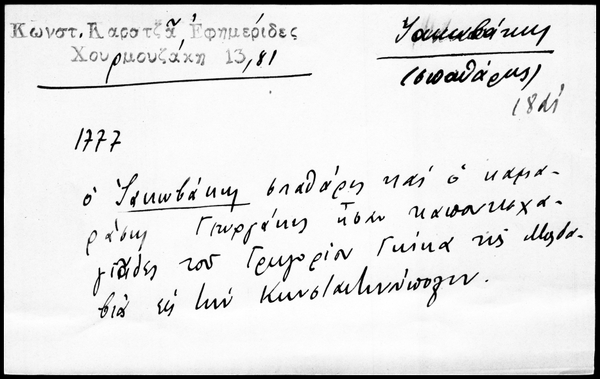 Κωνστ. Καρατζᾶ Ἐφημερίδες
Χουρμουζάκη 13, 81
Ἰακωβάκης
(σπαθάρης)
1777
ὁ Ἰακωβάκης σπαθάρης καί ὁ καμα-
ράσης Γεωργάκης ἦσαν καπουκεχα-
γιάδες τοῦ Γρηγορίου Γκίκα τῆς Μολδα-
βία εἰς τήν Κωνσταντινούπολιν.